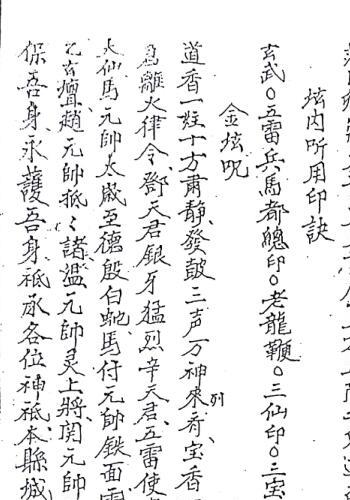 坛内所用印訣
玄武〇五雷兵馬都總印〇老龍鞭〇三仙印〇三宝
金坛咒
道香一炷十方肅静、發鼓三声万神來奇列、宝香
離火律令、鄧天君銀牙猛烈辛天君、五雷使
火仙馬元帥太歲至德殷白虵、馬仔元帥鉄面
玄壇趙元帥抵〻諸溫元帥灵上將、関元帥
保吾身、永護吾身祗承各位神祗本縣城